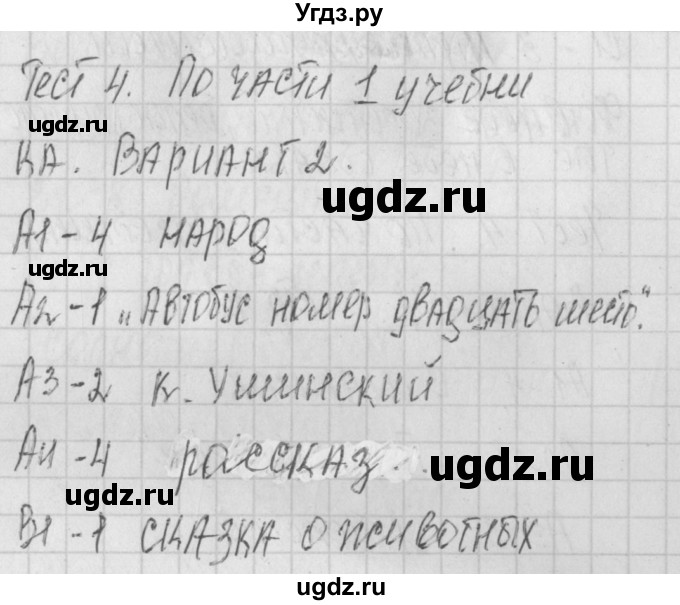 Угдз.ру
Тест 4. По части 1 учебни
ugdz.ru
ка. Вариант 2.
ugdz.ru
А1 - 4 народ
ugdz.ru
А2 - 1 „Автобус номер двадцать шесть".
А3 - 2 К. Ушинский
А4 - 4 рассказ
ugdz.ru
ugdz.ru
В1 - 1 сказка о животных
ugdz.ru
ugdz.ru